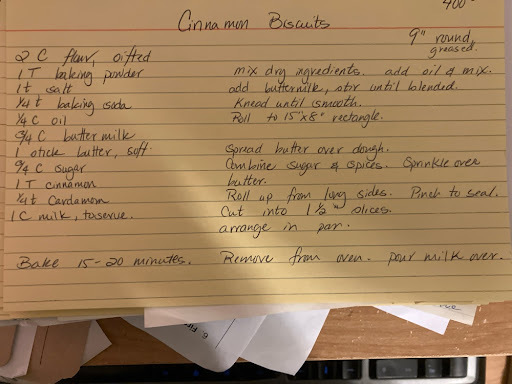 400°
Cinnamon Biscuits
9" round,
greased.
2 C flour, sifted
1 T baking powder
1 t salt
1/4 t baking soda
1/4 C oil
3/4 C buttermilk
1 stick butter, soft
3/4 C sugar
1 T cinnamon
1/4 t Cardamom
1 C milk, to serve.
mix dry ingredients. add oil & mix.
add buttermilk, stir until blended.
Knead until smooth.
Roll to 15"x8" rectangle.
Spread butter over dough.
Combine sugar & spices. Sprinkle over
butter.
Roll up from long sides. Pinch to seal.
Cut into 1 1/2" slices.
arrange in pan.
Bake 15-20 minutes. Remove from oven. pour milk over.